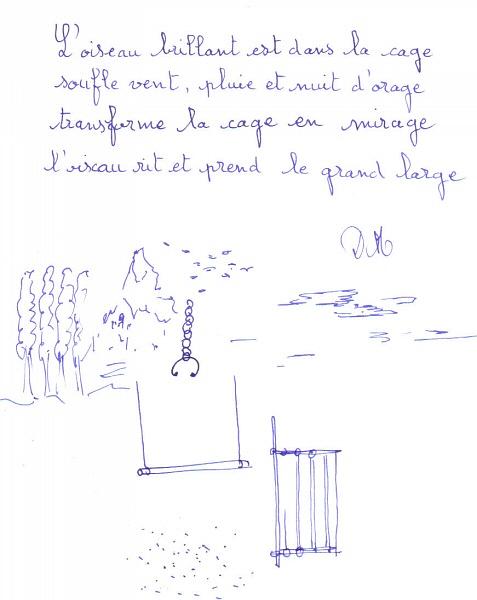 L'oiseau brillant est dans la cage
souffle vent, pluie et nuit d'orage
transforme la cage en mirage
l'oiseau rit et prend le grand large
DM